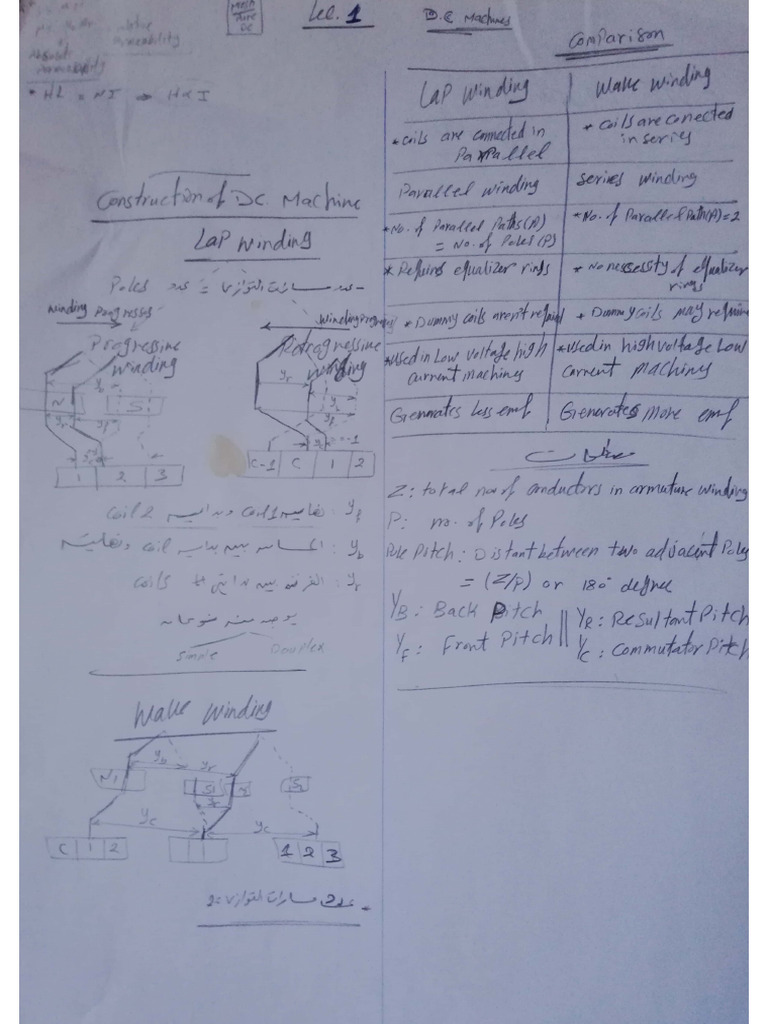 Lec. 1
D.C Machines
* HL = NI ⇒ H α I
Construction of DC. Machine
LaP winding
عدد مسارات التوازي = عدد Poles
winding Progresses
Progressine
winding
Retrogressine
winding
N
S
1 2 3
C-1 C 1 2
coil 2
coil 1
: yf
: yb
: yr
يوجد منه نوعان
Simple
Douplex
Wave winding
N1
S1
S2
yb
yr
yc
yc
C 1 2
1
1 2 3
عدد مسارات التوازي = 2
Comparison
LaP winding
Wave winding
* coils are connected in
Parallel
* Coils are conected
in series
Parallel winding
series winding
* No. of Parallel Paths (A)
= No. of Poles (P)
* No. of Parallel Path(A) = 2
* Requires equalizer rings
* No nessesity of equalizer
rings
* Dummy coils aren't required
* Dummy coils may require
* Used in Low voltage high
current machines
* Used in high voltage Low
current machines
Generates Less emf
Generates More emf
Z: total no. of conductors in armuture winding
P: no. of Poles
Pole Pitch: Distant between two adjacent Poles
= (Z/P) or 180° degree
YB: Back Pitch
YR: Resultant Pitch
YF: Front Pitch
YC: Commutator Pitch